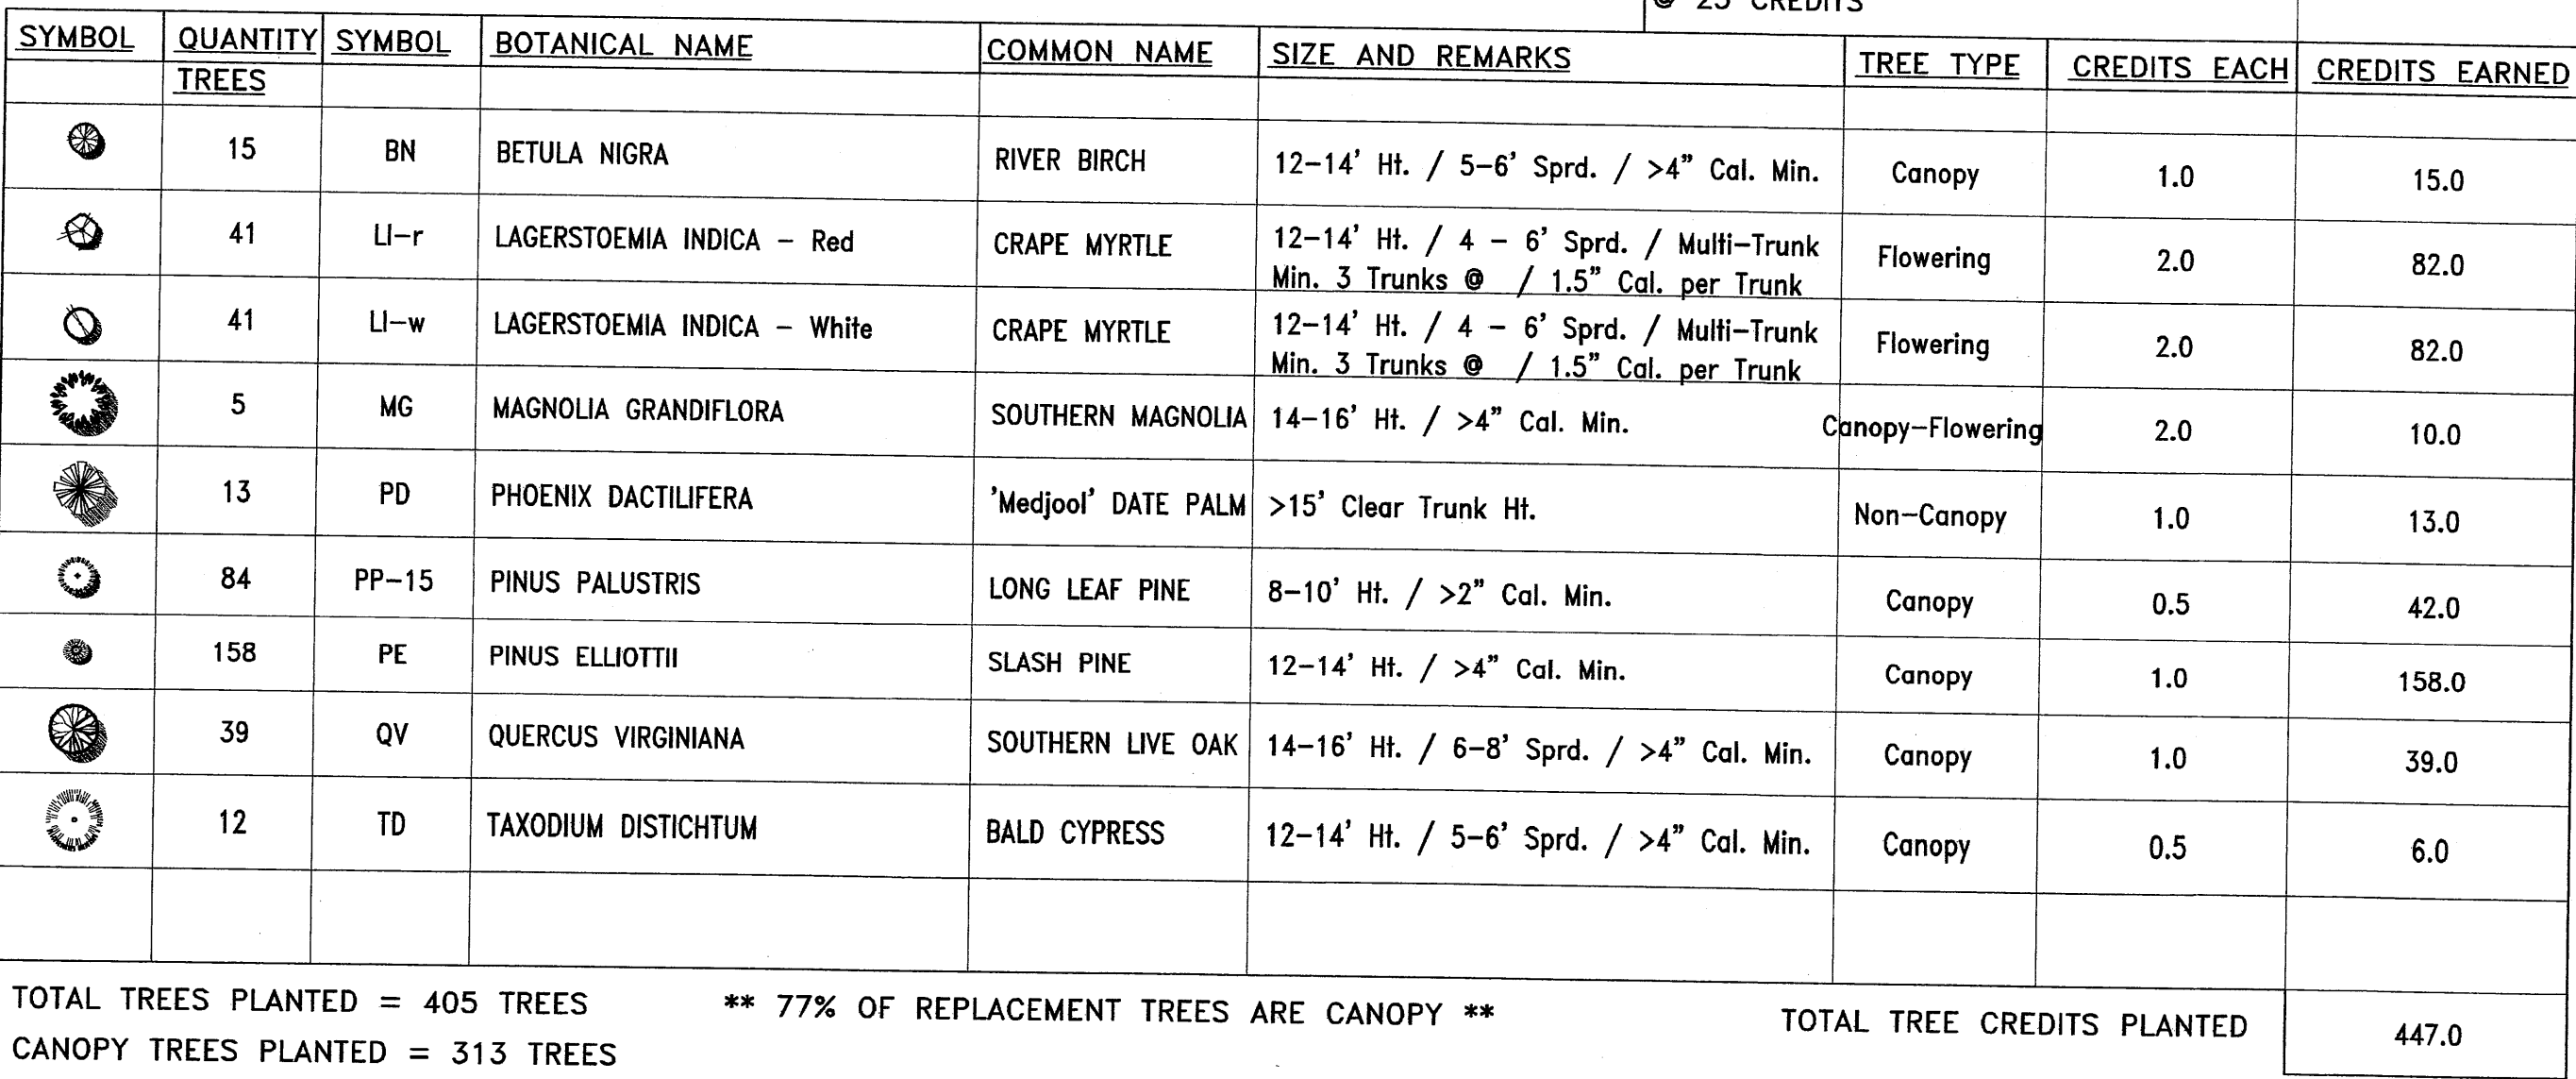 @ 25 CREDITS
SYMBOL QUANTITY SYMBOL BOTANICAL NAME COMMON NAME SIZE AND REMARKS TREE TYPE CREDITS EACH CREDITS EARNED
TREES
15 BN BETULA NIGRA RIVER BIRCH 12-14' Ht. / 5-6' Sprd. / >4" Cal. Min. Canopy 1.0 15.0
41 LI-r LAGERSTOEMIA INDICA - Red CRAPE MYRTLE 12-14' Ht. / 4 - 6' Sprd. / Multi-Trunk Flowering 2.0 82.0
Min. 3 Trunks @ / 1.5" Cal. per Trunk
41 LI-w LAGERSTOEMIA INDICA - White CRAPE MYRTLE 12-14' Ht. / 4 - 6' Sprd. / Multi-Trunk Flowering 2.0 82.0
Min. 3 Trunks @ / 1.5" Cal. per Trunk
5 MG MAGNOLIA GRANDIFLORA SOUTHERN MAGNOLIA 14-16' Ht. / >4" Cal. Min. Canopy-Flowering 2.0 10.0
13 PD PHOENIX DACTILIFERA 'Medjool' DATE PALM >15' Clear Trunk Ht. Non-Canopy 1.0 13.0
84 PP-15 PINUS PALUSTRIS LONG LEAF PINE 8-10' Ht. / >2" Cal. Min. Canopy 0.5 42.0
158 PE PINUS ELLIOTTII SLASH PINE 12-14' Ht. / >4" Cal. Min. Canopy 1.0 158.0
39 QV QUERCUS VIRGINIANA SOUTHERN LIVE OAK 14-16' Ht. / 6-8' Sprd. / >4" Cal. Min. Canopy 1.0 39.0
12 TD TAXODIUM DISTICHTUM BALD CYPRESS 12-14' Ht. / 5-6' Sprd. / >4" Cal. Min. Canopy 0.5 6.0
TOTAL TREES PLANTED = 405 TREES ** 77% OF REPLACEMENT TREES ARE CANOPY ** TOTAL TREE CREDITS PLANTED 447.0
CANOPY TREES PLANTED = 313 TREES